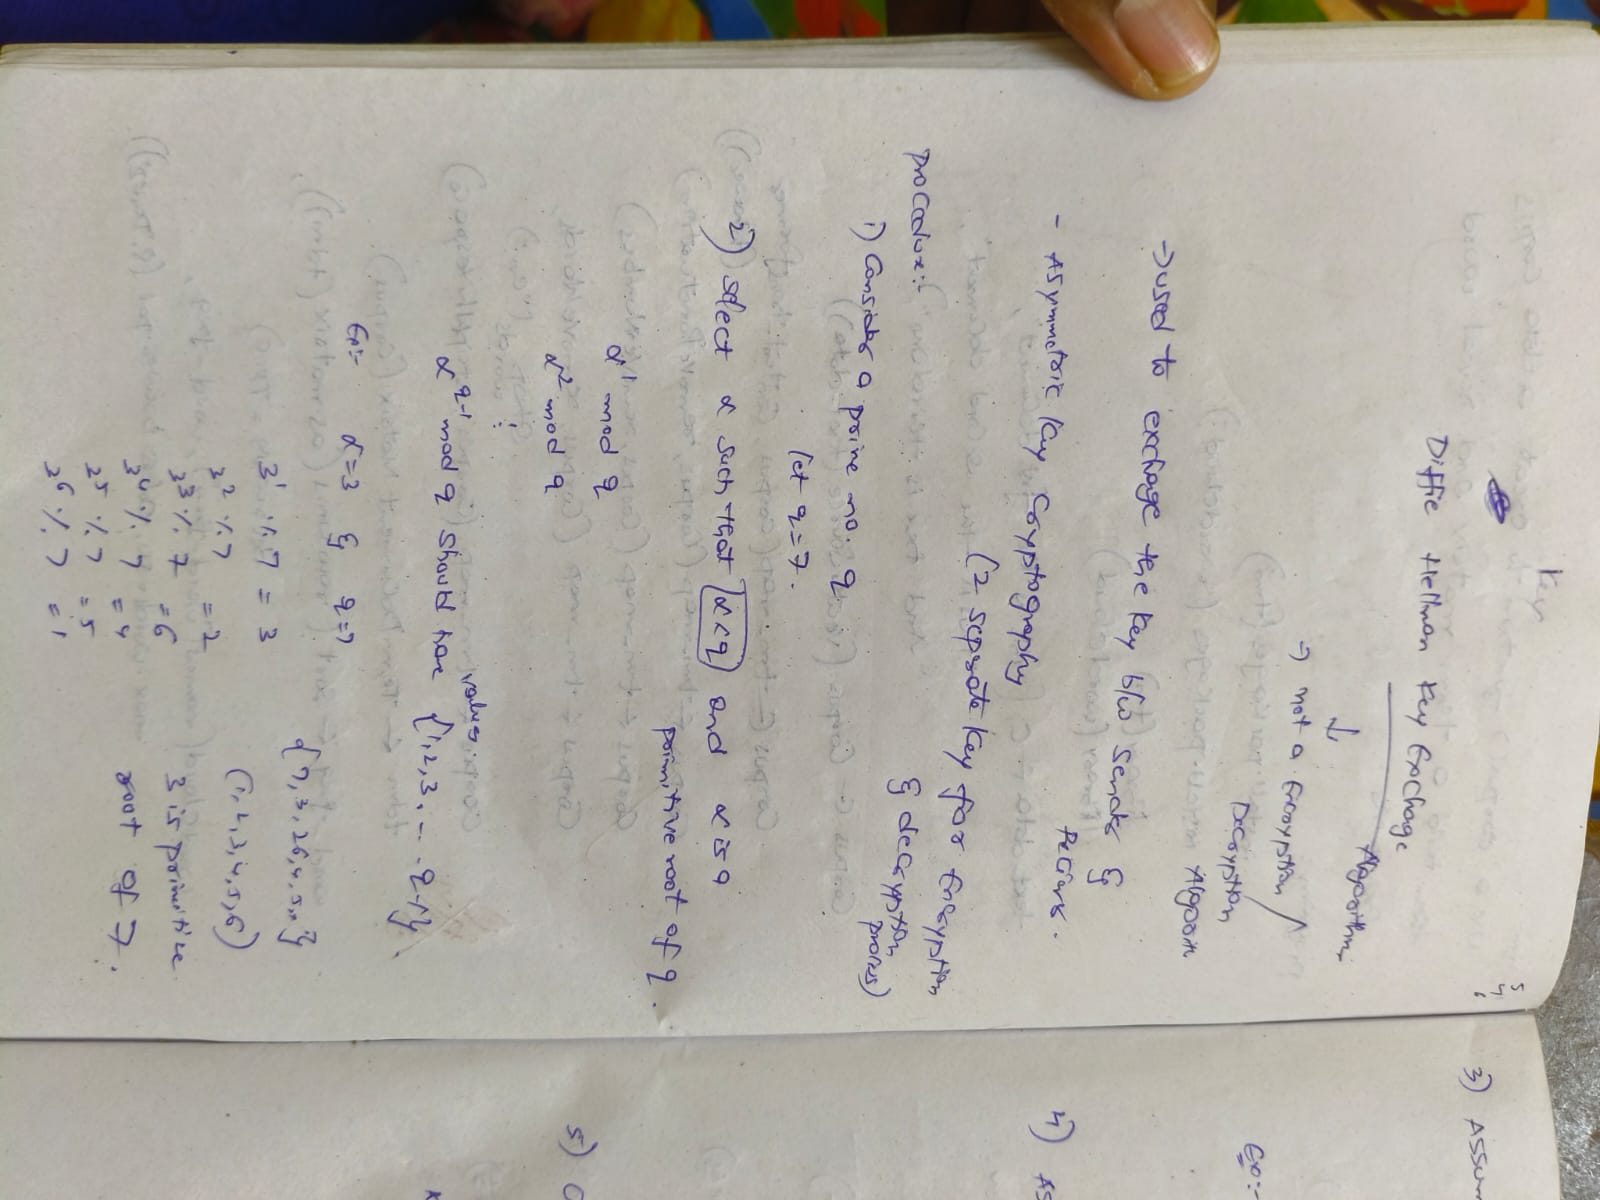 Key
5
4
6
Diffie Hellman Key Exchange
Algorithm
↓
→ not a Encryption /
Decryption
Algorith
→ used to exchage the Key b/w sender &
- Asymmetric Key Cryptography
(2 seprate Key for Encryption
& decryption
process)
procedure:-
1) Consider a prime no. q
let q=7.
2) select α such that α<q and α is a
primitive root of q.
α^1 mod q
α^2 mod q
⋮
α^q-1 mod q should have values {1,2,3.... q-1}
Ex:- α=3 & q=7
3^1 % 7 = 3
3^2 % 7 = 2
3^3 % 7 = 6
3^4 % 7 = 4
3^5 % 7 = 5
3^6 % 7 = 1
(1,2,3,4,5,6)
3 is primitive
root of 7.
3) Assum
Ex:-
4) As
5)